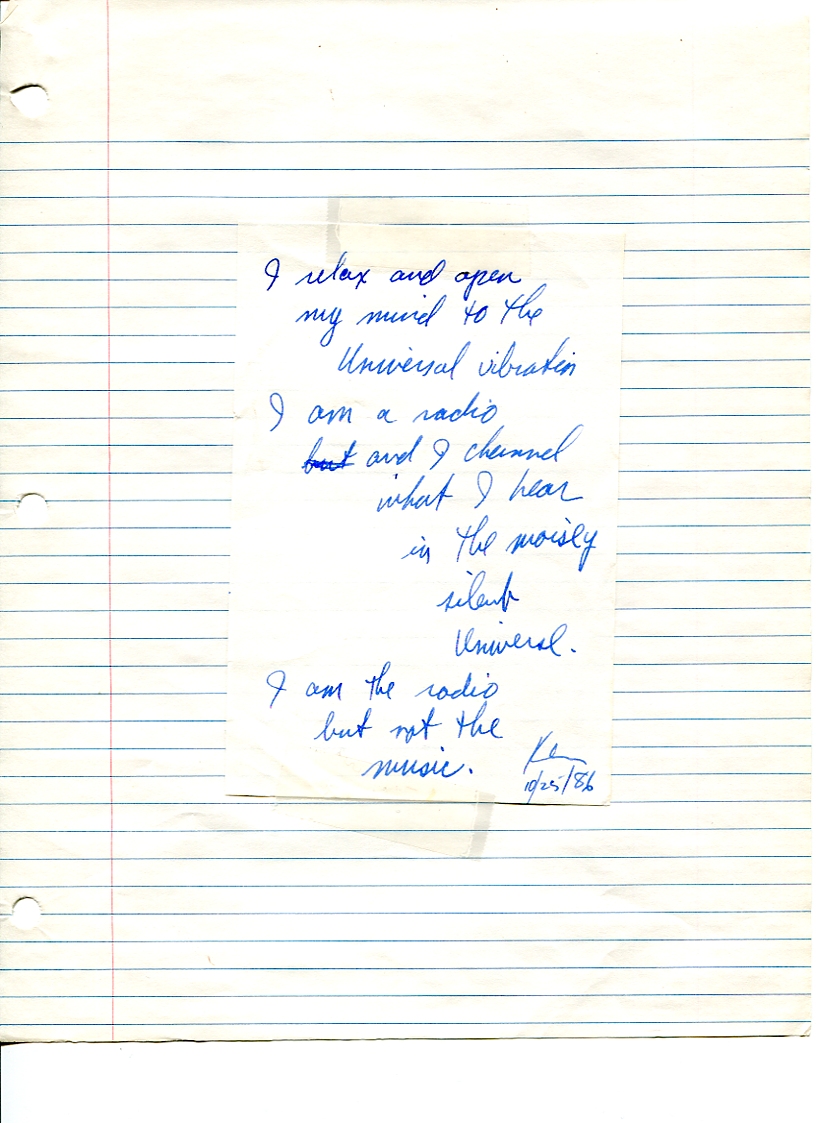 I relax and open
my mind to the
Universal vibration
I am a radio
but and I channel
what I hear
in the noisey
silent
Universal.
I am the radio
but not the
music.
Ken
10/25/86